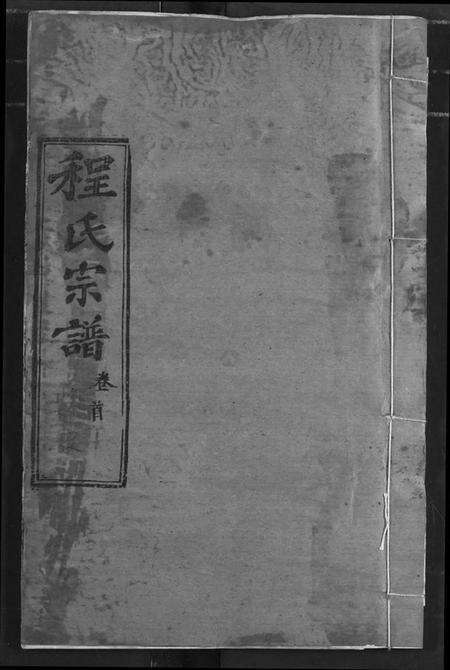 程氏宗譜
卷首